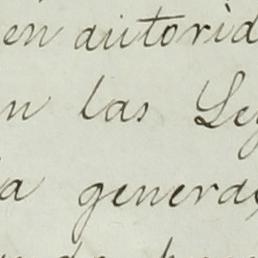 en autorid
n las Ley
a genera